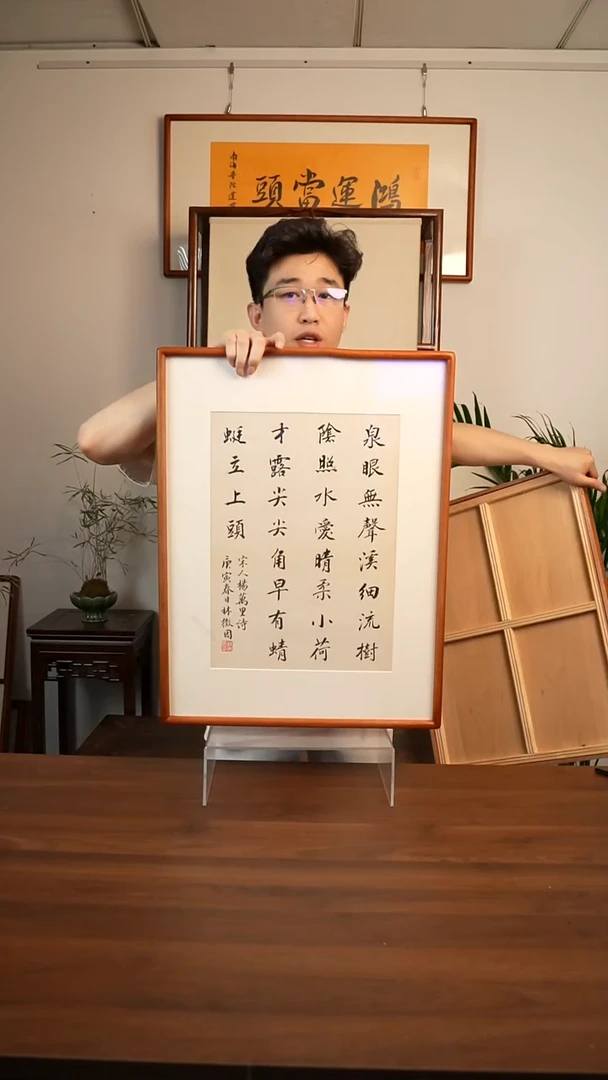 鴻運當頭
南海普陀
泉眼無聲溪細流樹
陰照水愛晴柔小荷
才露尖尖角早有蜻
蜓立上頭
宋人楊萬里詩
庚寅春日林徽因